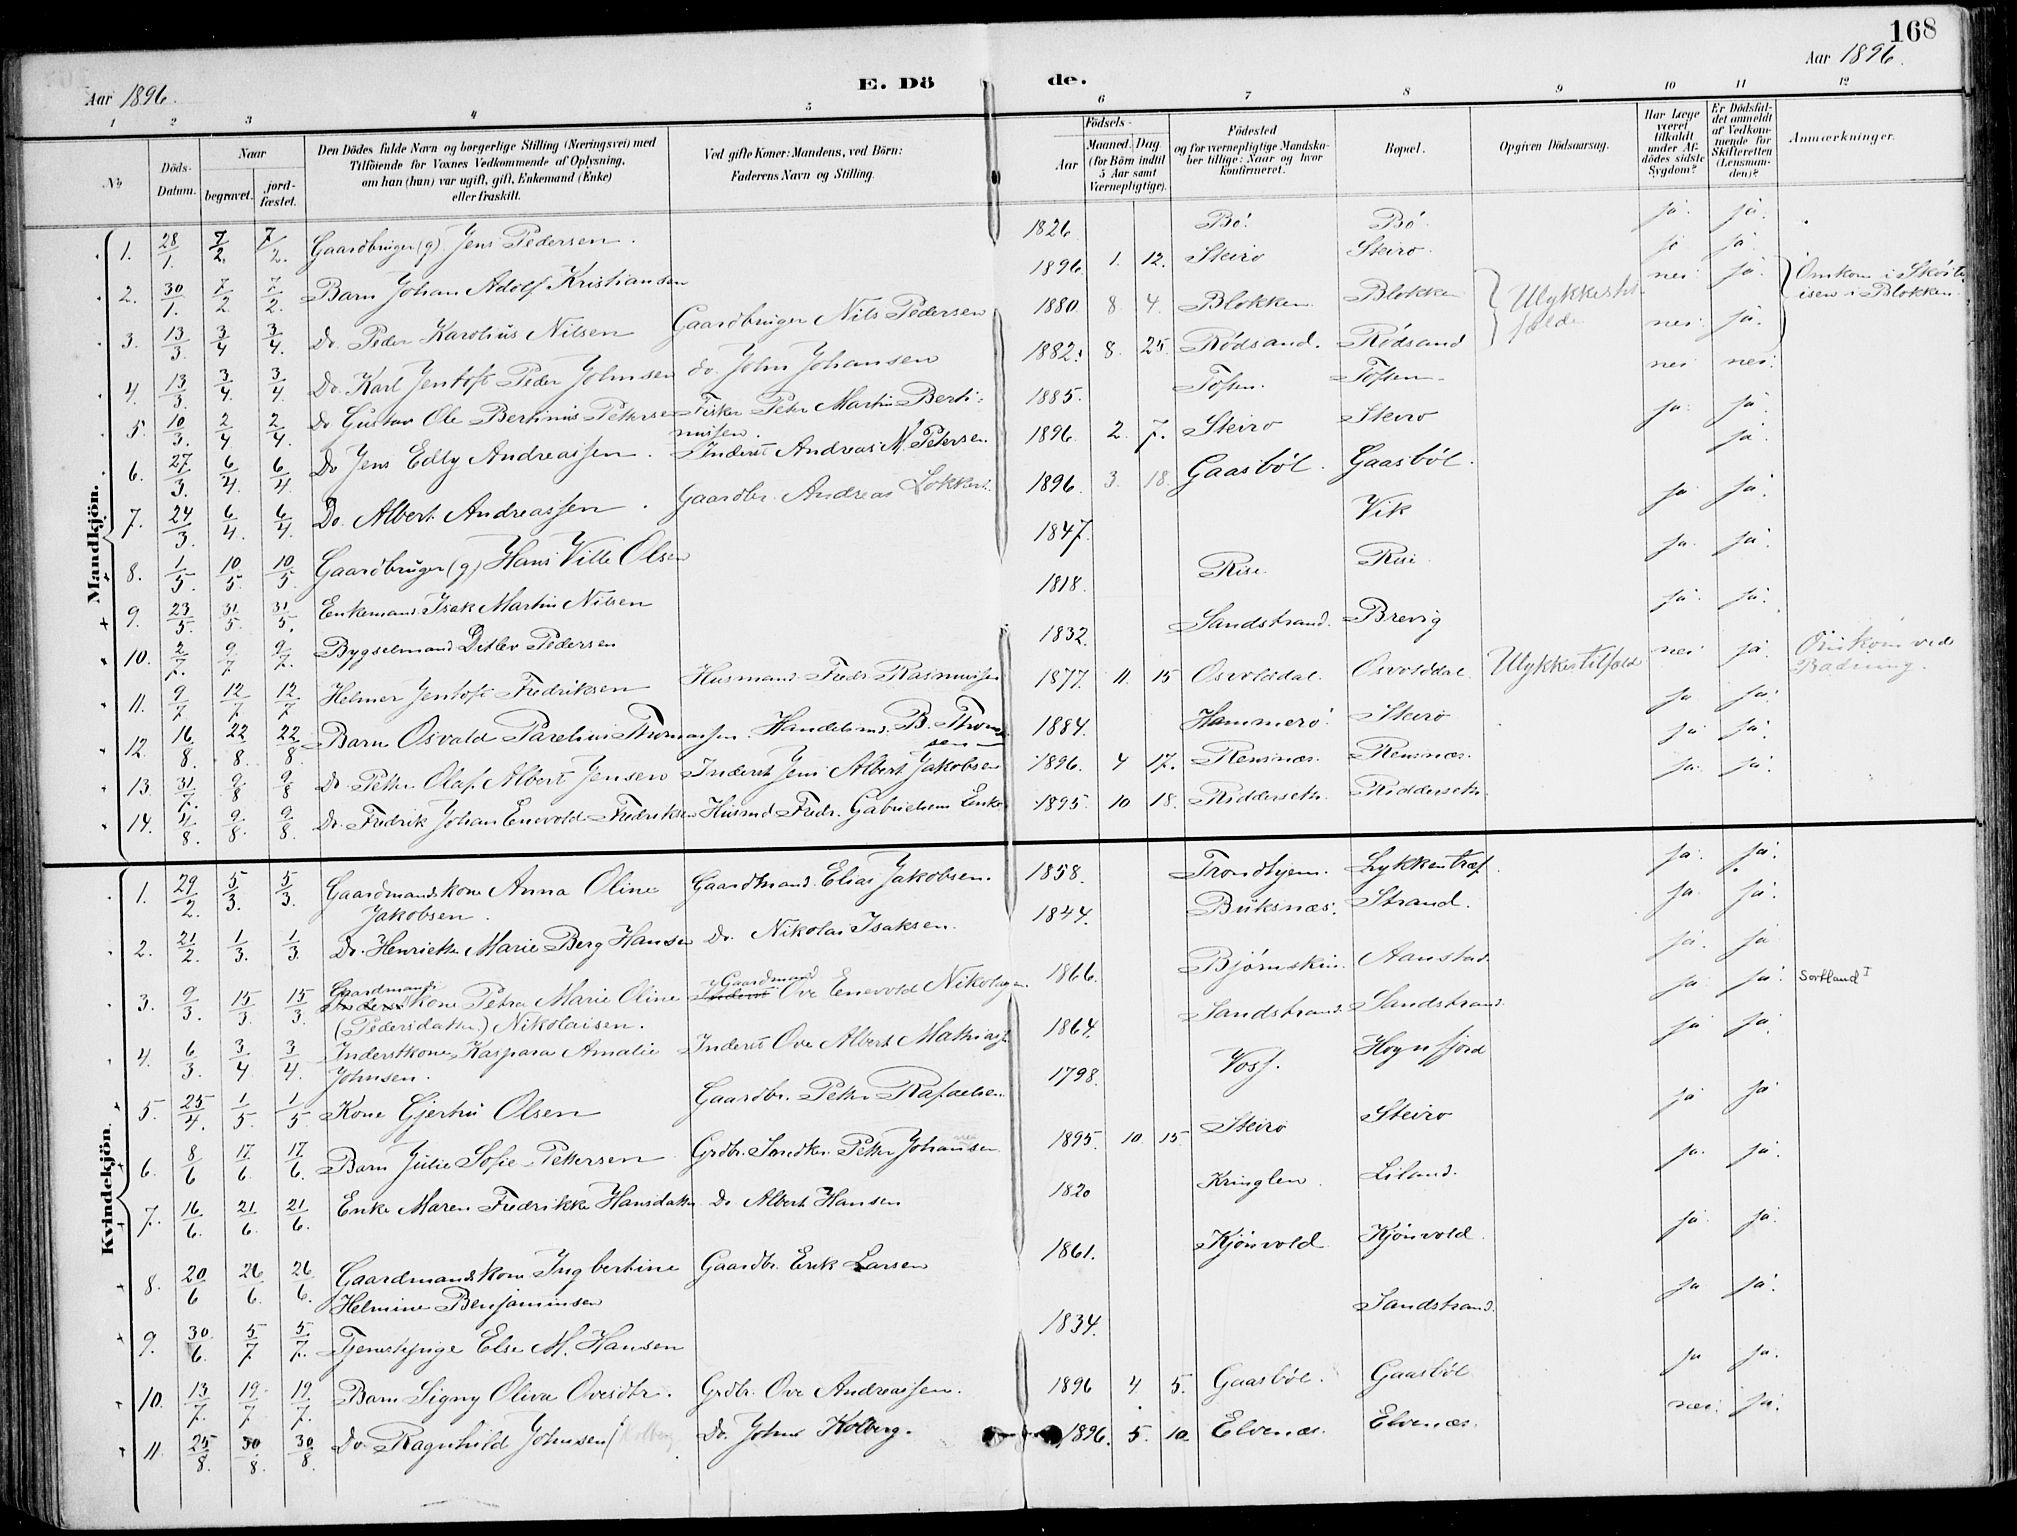 168
Aar 1896.
E. Dö
de.
Aar 1896.
1 2 3 4 5 6 7 8 9 10 11 12
No
Döds-Datum.
Naar
begravet.
jord-fæstet.
Den Dödes fulde Navn og borgerlige Stilling (Næringsvei) med
Tilföiende for Voxnes Vedkommende af Oplysning,
om han (hun) var ugift, gift, Enkemand (Enke)
eller fraskilt.
Ved gifte Koner: Mandens, ved Börn:
Faderens Navn og Stilling.
Födsels-
Aar
Maaned. Dag
(for Börn indtil
5 Aar samt
Værnepligtige).
Födested
og for værnepligtige Mandska-
ber tillige: Naar og hvor
konfirmeret.
Bopæl.
Opgiven Dödsaarsag.
Har Læge
været
tilkaldt
under Af-
dödes sidste
Sygdom?
Er Dödsfal-
det anmeldt
af Vedkom-
mende for
Skifteretten
(Lensman-
den)?
Anmærkninger.
Mandkjön.
1. 28/1. 7/2. 7/2. Gaardbruger (g) Jens Pedersen. 1826 Bö. Bö. ja. ja.
2. 30/1. 7/2. 7/2. Barn Johan Adolf Kristiansen 1896. 1. 12. Steirø Steirø. ja ja.
3. 13/3 3/4 3/4. Do. Peder Karolius Nilsen Gaardbruger Nils Pedersen 1880. 8. 4. Blokken Blokken Ulykkestil-fælde nei ja. Omkom i Skøite-isen i Blokken.
4. 13/3. 3/4. 3/4. Do. Karl Jentoft Peder Johnsen do. John Johansen 1882. 8. 25. Rödsand. Rödsand nei ja.
5. 10/3. 2/4 2/4. Do Gustav Ole Bertinus Petterse Fisker Peter Martin Berti-nussen. 1885. Toften. Toften nei nei.
6. 27/3. 6/4 6/4 Do Jens Edly Andreassen. Inderst Andreas M. Petersen. 1896. 2. 7. Steirø Steiro ja. ja.
7. 24/3. 6/4. 6/4. Do. Albert Andreassen. Gaardbr. Andreas Lokkert. 1896. 3. 18. Gaasböl. Gaasböl. ja.
8. 1/5. 10/5. 10/5. Gaardbruger (g) Hans Ville Olsen 1847. Vik ja ja.
9. 23/5. 31/5. 31/5. Enkemand Isak Martin Nilsen 1818. Rise. Rise. ja. ja.
10. 2/7. 9/7 9/7. Bygselmand Ditlev Pedersen 1832. Sandstrand. Brevig ja. ja.
11. 9/7 12/7 12/7 Helmer Jentoft Fredriksen Husmand Fredr. Rasmussen 1877. 11 15 Osvolddal. Osvolddal Ulykkestilfæld nei ja. Omkom ved Badning.
12. 16/8. 22/8. 22/8. Barn Osvald Parelius Thomassen. Handelsmd. B. Thomsen 1884. Hammerö. Steirø ja ja.
13. 31/7. 9/8 9/8 Do Petter Olaf Albert Jensen Inderst Jens Albert Jakobsen 1896. 4 17. Rensnæs. Rensnæs. ja ja.
14. 4/8. 9/8. 9/8. Do. Fredrik Johan Enevold Fredriksen Husmd Fredr. Gabrielsens Enke 1895. 10 18. Riddersetr. Riddersetr. ja. ja.
Kvindekjön.
1. 29/2. 5/3. 5/3. Gaardmandskone Anna Oline Jakobsen. Gaardmand Elias Jakobsen. 1858. Trondhjem. Lykkentræf. ja. ja.
2. 21/2. 1/3. 1/3. Do. Henriette Marie Berg Hansen Do. Nikolai Isaksen. 1844. Buksnæs. Strand. ja. ja.
3. 9/3. 15/3. 15/3 Gaardmands Inderstkone Petra Marie Oline (Pedersdatter) Nikolaisen. Gaardmand Inderst Ove Enevold Nikolaisen 1866. Bjørnskin. Aanstad. ja. ja
4. 6/3. 3/4 3/4. Inderstkone Kaspara Amalie Johnsen. Inderst Ove Albert Mathias 1864. Sandstrand. Sandstrand. ja. ja. Sortland I
5. 25/4. 1/5. 1/5 Kone Gjertru Olsen Gaardbr. Petter Rafaelsen. 1798. Voss. Hognfjord ja ja.
6. 8/6 17/6. 17/6. Barn Julie Sofie Pettersen Grdbr. Snedker Petter Johansen 1895. 10. 15. Steirø Steirø ja ja
7. 16/6. 21/6. 21/6. Enke Maren Fredrikke Hansdatter Do Albert Hansen 1820 Kringlen. Liland. ja. ja.
8. 20/6 26/6. 26/6. Gaardmandskone Ingbertine Helmine Benjaminsen Gaardbr. Erik Larsen 1861. Kjönvold Kjönvold. ja. ja.
9. 30/6. 5/7 5/7. Tjenestepige Else M. Hansen 1834. Sandstrand. ja ja.
10. 13/7. 19/7 19/7. Barn Signy Oliva Ovesdtr. Grdbr. Ove Andreassen. 1896 4 5. Gaasböl. Gaasböl ja ja.
11. 25/8. 30/8. 30/8. Do. Ragnhild Johnsen (Kolberg Do. Johns Kolberg. 1896. 5. 10. Elvenæs. Elvenæs. nei. ja.